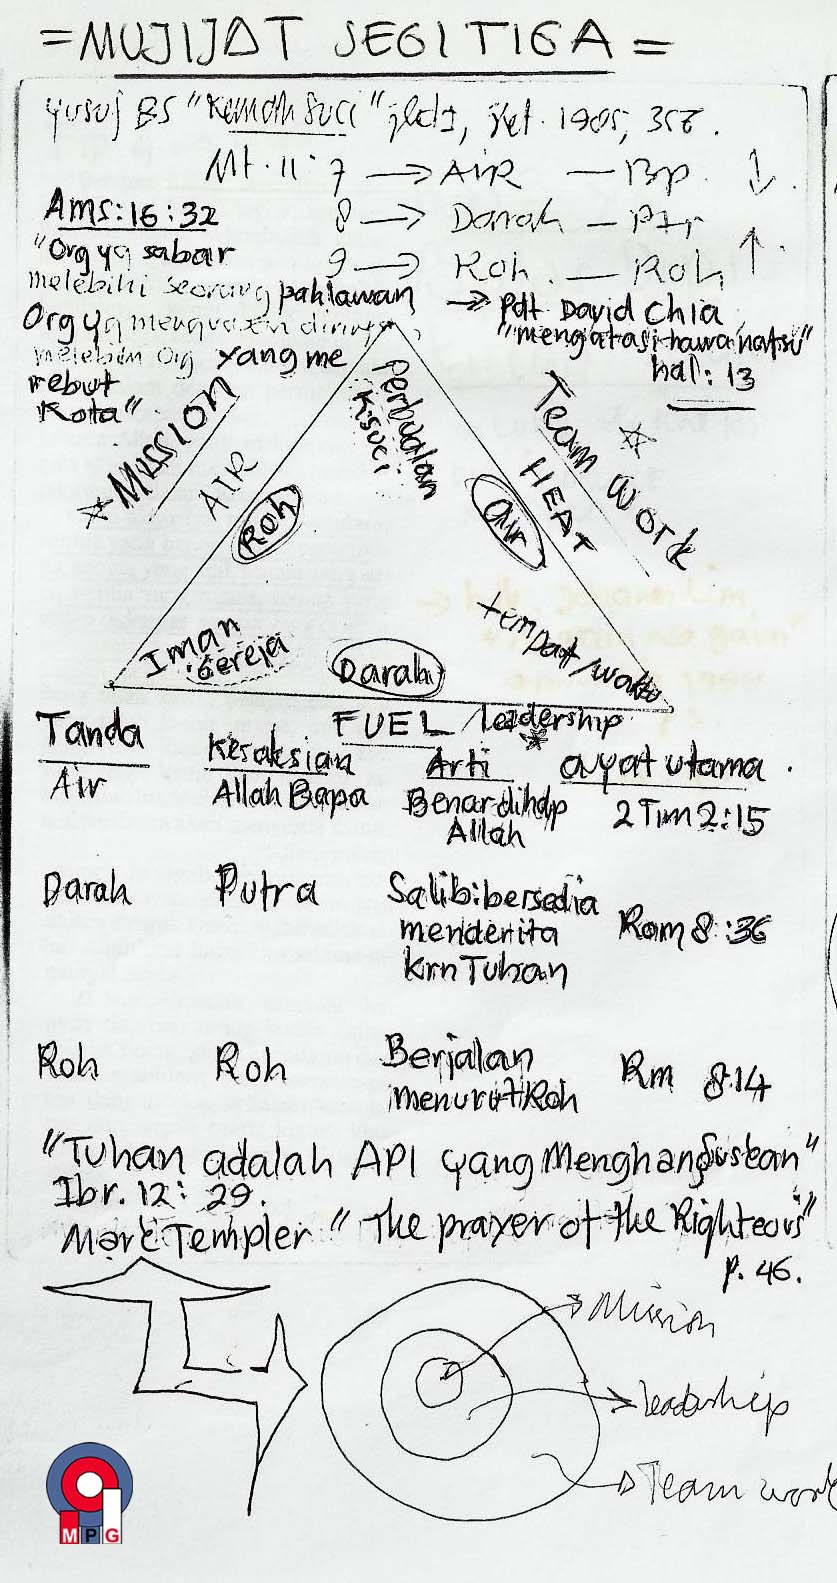 =MUJIJAT SEGITIGA=
Yusuf BS "Kemah Suci" jld I, 1985, 356.
Mt. 11: 7 → AIR — Bp. ↓
8 → Darah — Ptr
9 → Roh. — Roh ↑
Ams: 16:32
"Org yg sabar
melebihi seorang pahlawan
Org yg menguasai dirinya
melebihi org yang me
rebut
Kota"
→ Pdt David Chia
"mengatasi hawa nafsu"
hal: 13
☆ MISSION
AIR
Roh
Perbuatan
K.suci
Team Work ☆
HEAT
air
Iman
Gereja
Darah
tempat/waktu
FUEL /leadership ☆
Tanda Kesaksian Arti ayat utama.
Air Allah Bapa Benar dihdp Allah 2 Tim 2:15
Darah Putra Salib: bersedia menderita krn Tuhan Rom 8:36
Roh Roh Berjalan menurut Roh Rm 8:14
"Tuhan adalah API yang Menghanguskan"
Ibr. 12: 29.
Marc Templer "The prayer of the Righteous"
p. 46.
Mission
leadership
Team work
MPG